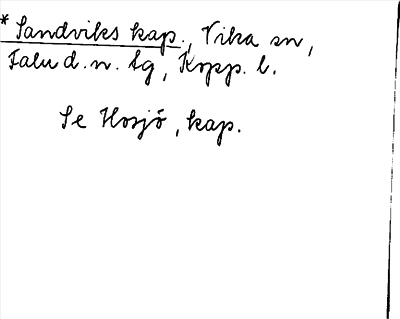 * Sandviks kap., Vika sn,
Falu d.n. tg, Kopp. l.
Se Hosjö, kap.